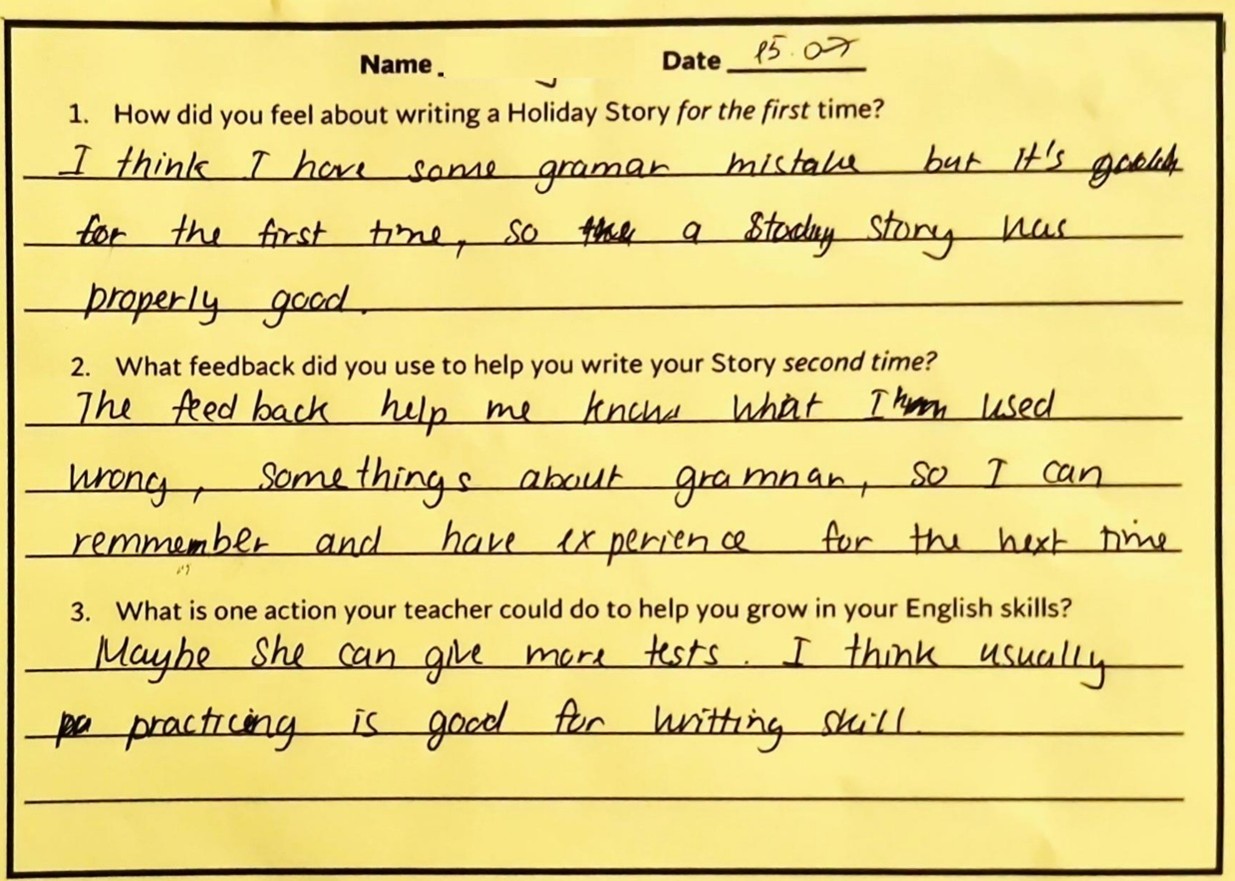 Name. Date 15.07
1. How did you feel about writing a Holiday Story for the first time?
I think I have some gramar mistake but it's good
for the first time, so a story has
properly good.
2. What feedback did you use to help you write your Story second time?
The feed back help me know what I used
wrong, some things about gramnar, so I can
remmember and have experience for the next time
3. What is one action your teacher could do to help you grow in your English skills?
Maybe she can give more tests. I think usually
practicing is good for writting skill.